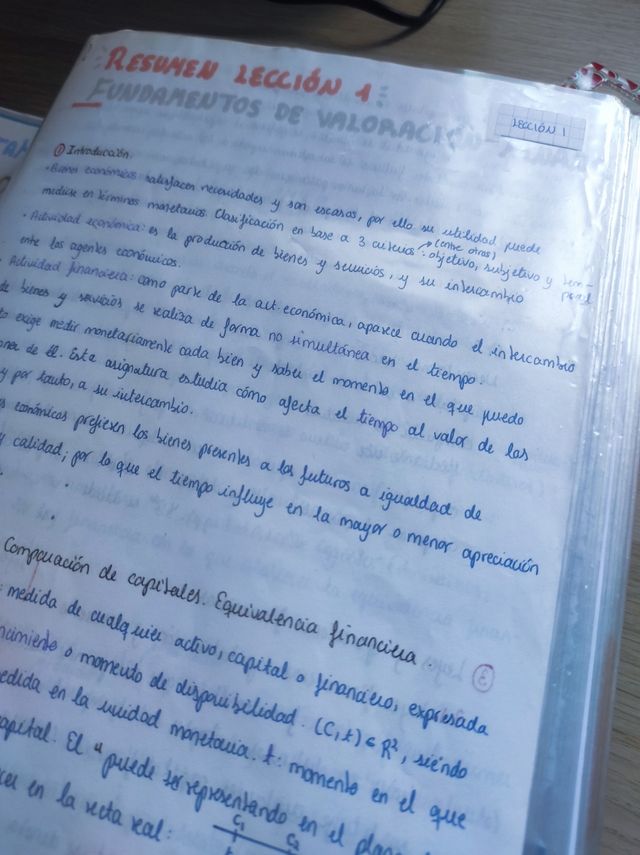 RESUMEN LECCIÓN 1:
FUNDAMENTOS DE VALORACIÓN
LECCIÓN 1
① Introducción.
• Bienes económicos satisfacen necesidades y son escasos, por ello su utilidad puede
medirse en términos monetarios. Clasificación en base a 3 criterios: objetivo, subjetivo y tem-
(entre otros)
poral
• Actividad económica: es la producción de bienes y servicios, y su intercambio
entre los agentes económicos.
• Actividad financiera: como parte de la act. económica, aparece cuando el intercambio
de bienes y servicios se realiza de forma no simultánea en el tiempo.
to exige medir monetariamente cada bien y saber el momento en el que puedo
oner de él. Esta asignatura estudia cómo afecta el tiempo al valor de los
y por tanto, a su intercambio.
s económicos prefieren los bienes presentes a los futuros a igualdad de
y calidad, por lo que el tiempo influye en la mayor o menor apreciación
Comparación de capitales. Equivalencia financiera. ③
: medida de cualquier activo, capital o financiero, expresada
ncimiento o momento de disponibilidad. (C,t) ∈ R², siendo
edida en la unidad monetaria. t: momento en el que
capital. El " puede ser representando en el plano
cer en la recta real:
C₁
C₂